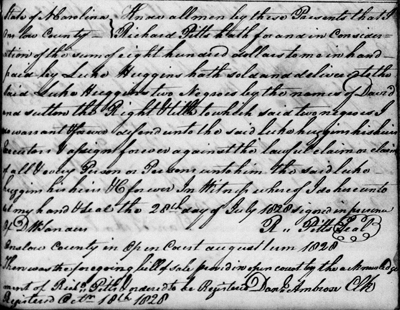 State of N Carolina } Know all men by these Presents that I
Onslow County } Richard Pitts hath for and in Consider-
ation of the sum of eight hundred dollars to me in hand
paid by Luke Huggins hath sold and delivered to the
said Luke Huggins two Negroes by the names of David
and Sutton the Right & title to which said two negroes
warrant & forever defend unto the said Luke huggins his heirs
Executors & assigns forever against the lawful claim or claims
of all & every Person or Persons unto him the said Luke
huggins his heirs &c forever In Witness whereof I do hereunto
set my hand & seal the 28th day of July 1828 signed in presence
of D Ambrose R. Pitts Seal
Onslow County in Open Court august Term 1828
Then was the foregoing bill of sale proved in open court by the acknowledge
ment of Richd Pitts ordered to be Registered Danl Ambrose Clk
Registered Octr 18th 1828